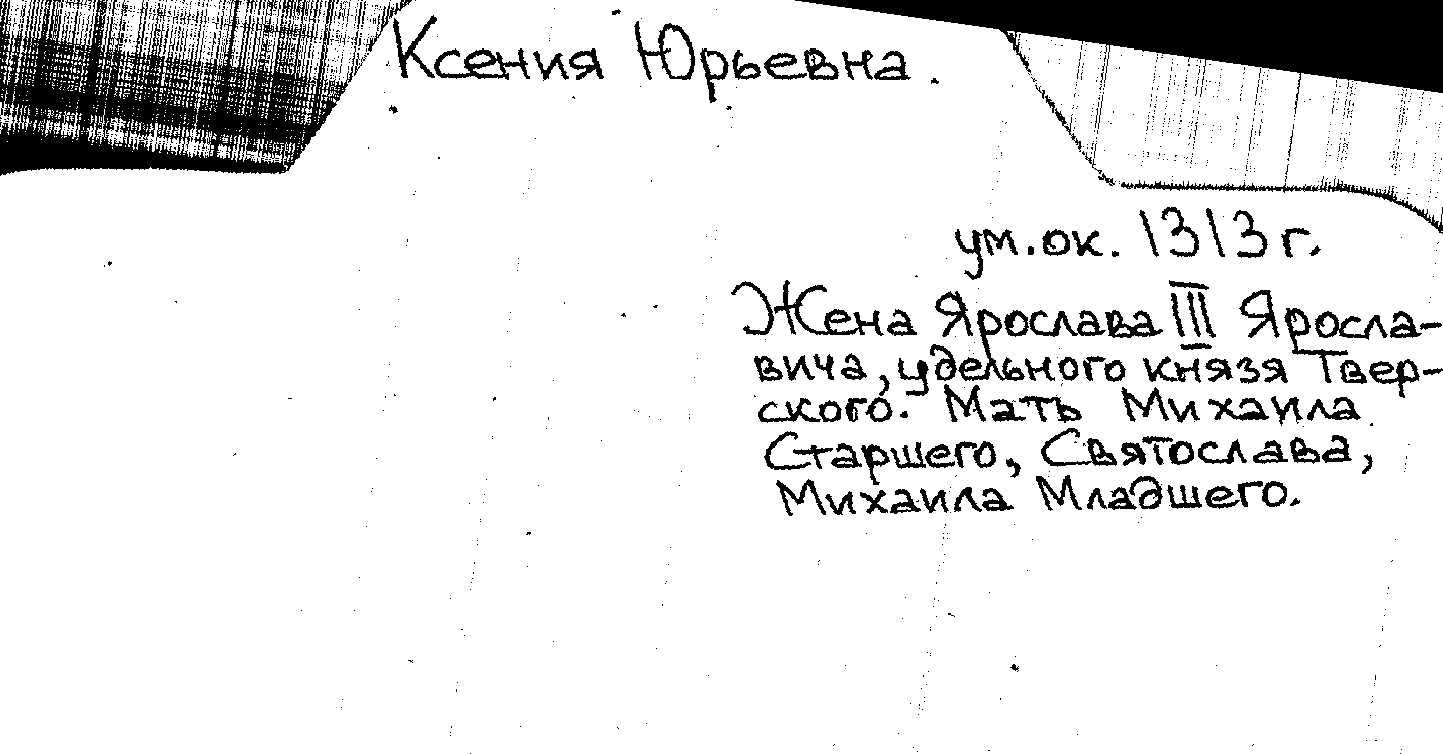 Ксения Юрьевна.
ум. ок. 1313 г.
Жена Ярослава III Яросла-
вича, удельного князя Твер-
ского. Мать Михаила
Старшего, Святослава,
Михаила Младшего.